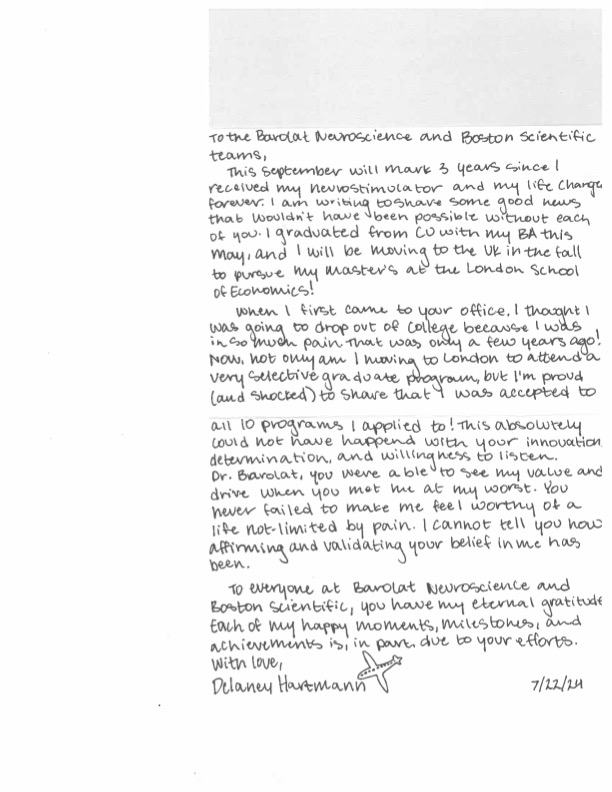 To the Barolat Neuroscience and Boston Scientific
teams,
This September will mark 3 years since I
received my neurostimulator and my life change
forever. I am writing to share some good news
that wouldn't have been possible without each
of you. I graduated from CU with my BA this
May, and I will be moving to the UK in the fall
to pursue my master's at the London School
of Economics!
When I first came to your office, I thought I
was going to drop out of college because I was
in so much pain. That was only a few years ago!
Now, not only am I moving to London to attend a
very selective graduate program, but I'm proud
(and shocked) to share that I was accepted to
all 10 programs I applied to! This absolutely
could not have happend with your innovation,
determination, and willingness to listen.
Dr. Barolat, you were able to see my value and
drive when you met me at my worst. You
never failed to make me feel worthy of a
life not-limited by pain. I cannot tell you how
affirming and validating your belief in me has
been.
To everyone at Barolat Neuroscience and
Boston Scientific, you have my eternal gratitude
Each of my happy moments, milestones, and
achievements is, in part, due to your efforts.
With love,
Delaney Hartmann 7/22/24